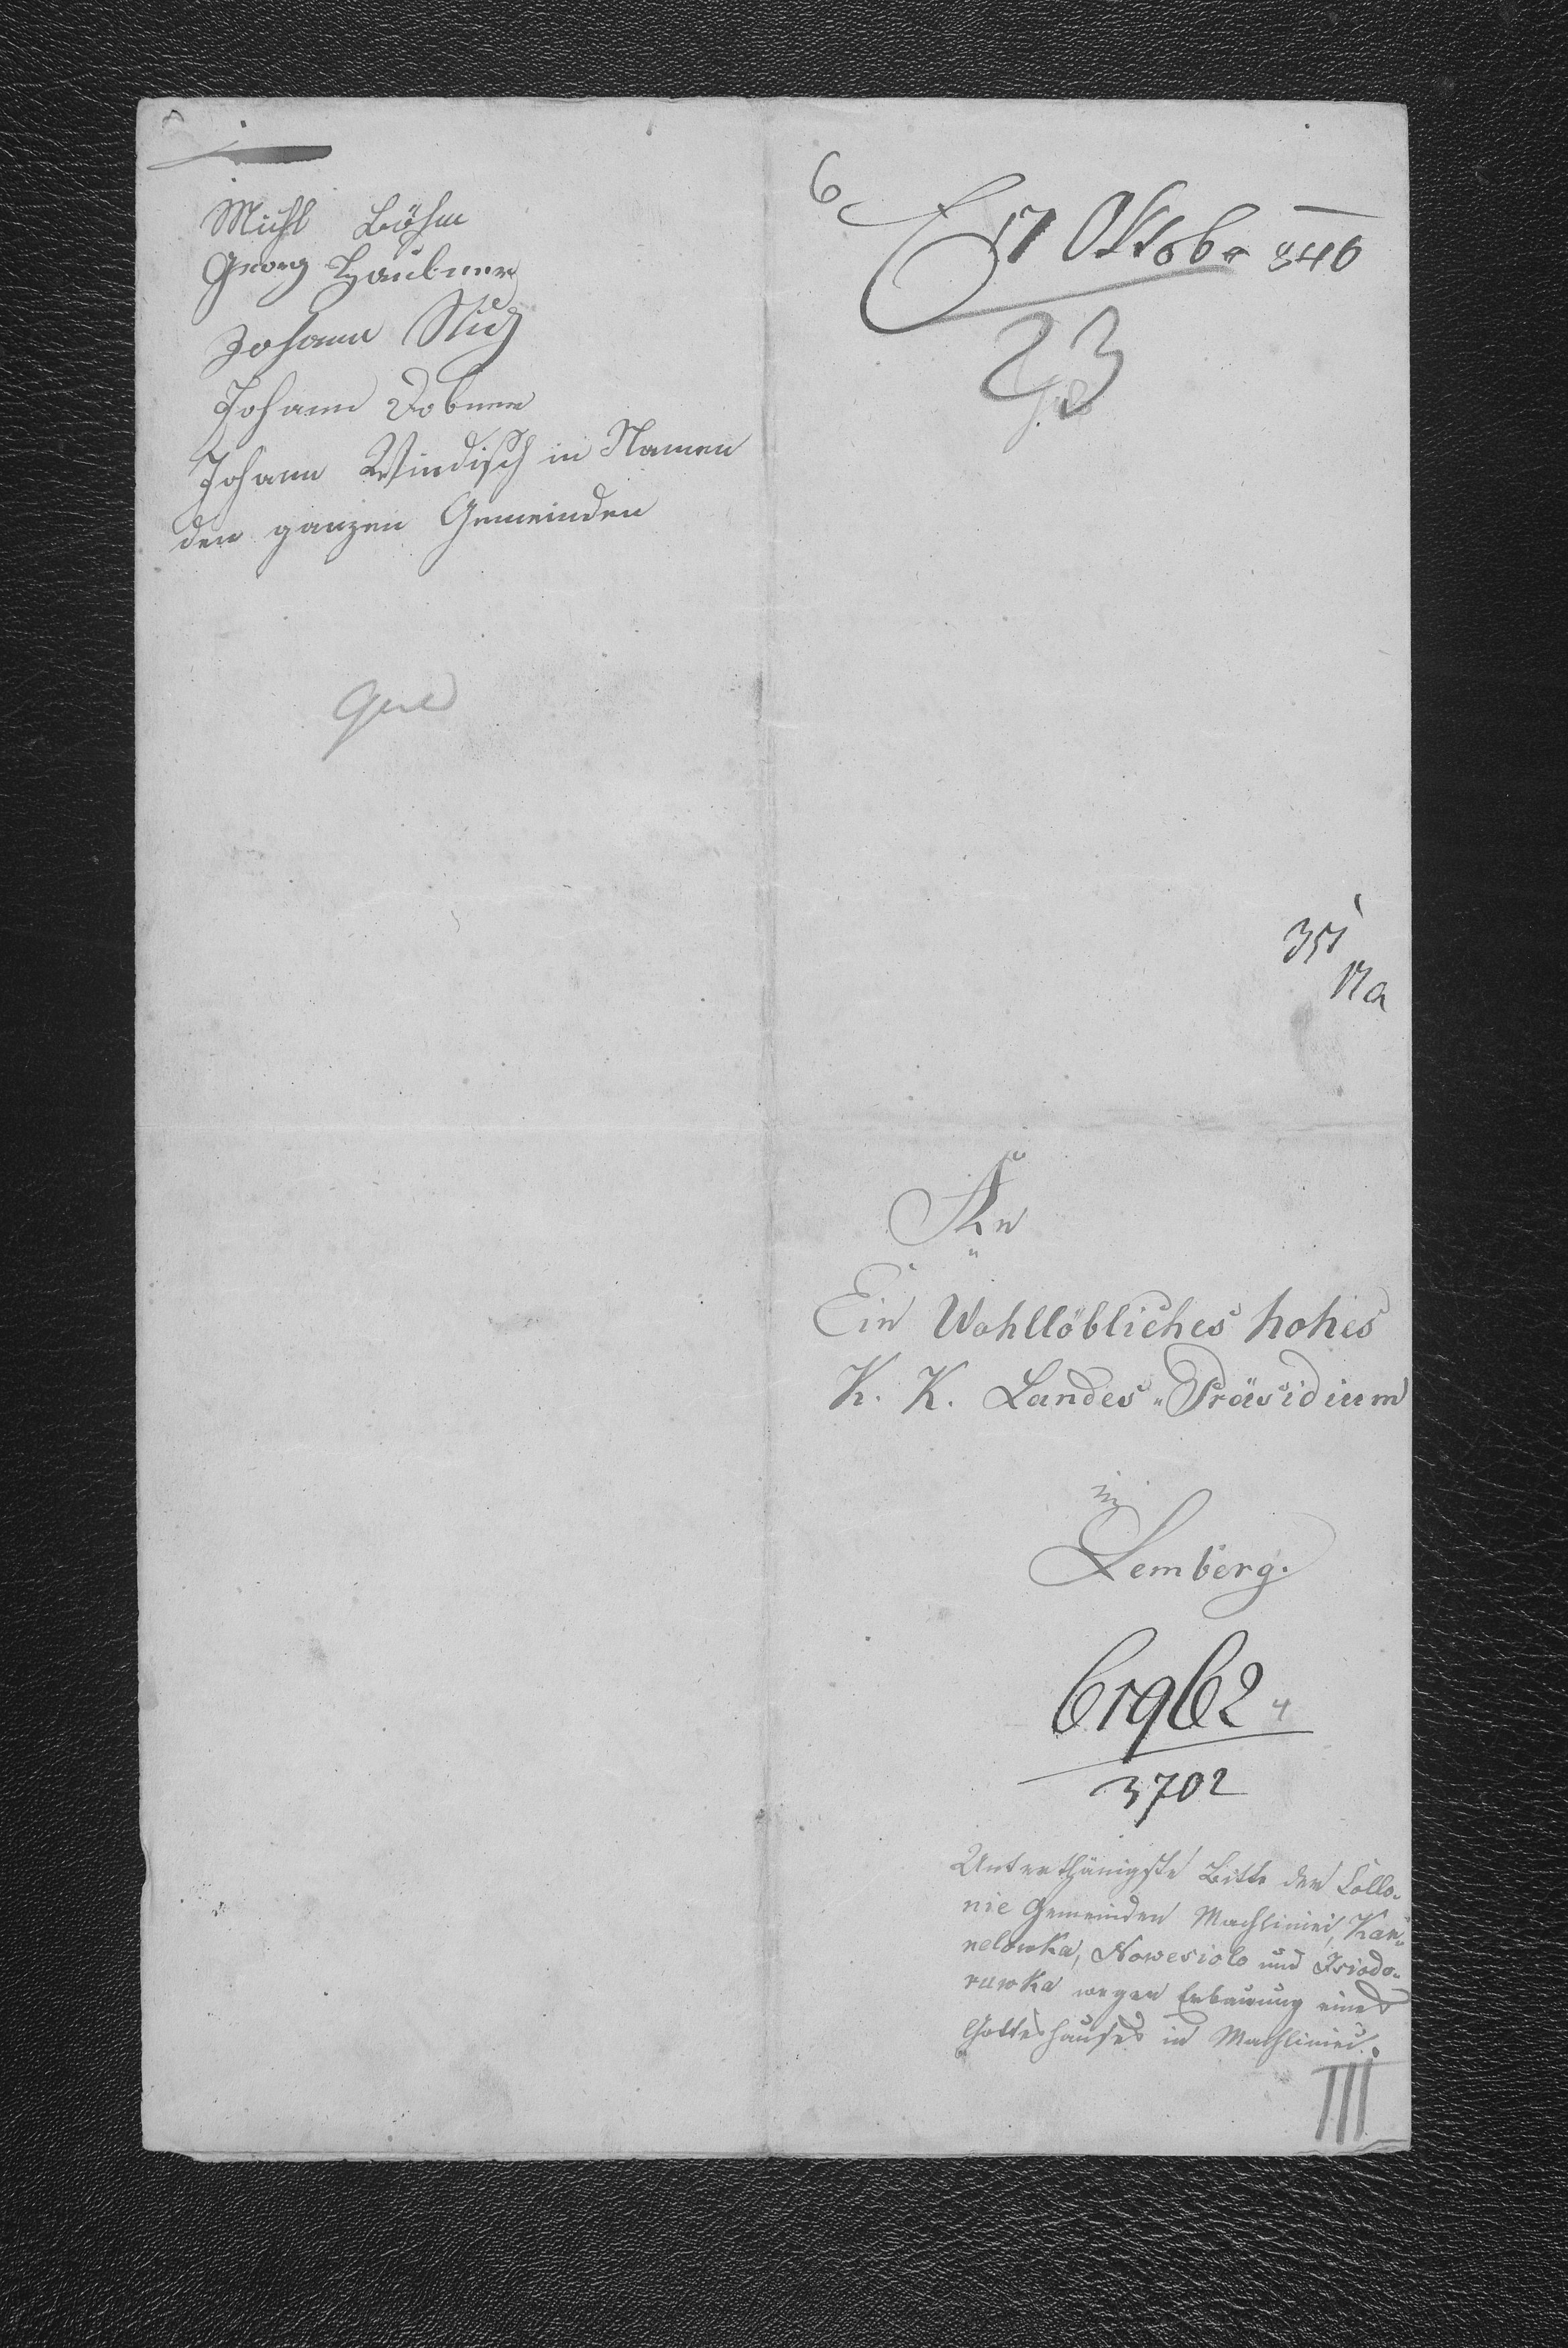 Michl Böhm
Georg Haubner
Johann
Johann Dobner
Johann Windisch in Namen
der ganzen Gemeinden
6
17 Oktobr 846
23
An
Ein Wohllöbliches hohes
K. K. Landes-Präsidium
in
Lemberg.
3702
Unterthänigste Bitte der Collo-
nie Gemeinden Machliniec, Kar-
nelowka, Nowesiolo und Isido-
ruwka wegen Erbauung eines
Gotteshauses in Machliniec.
III